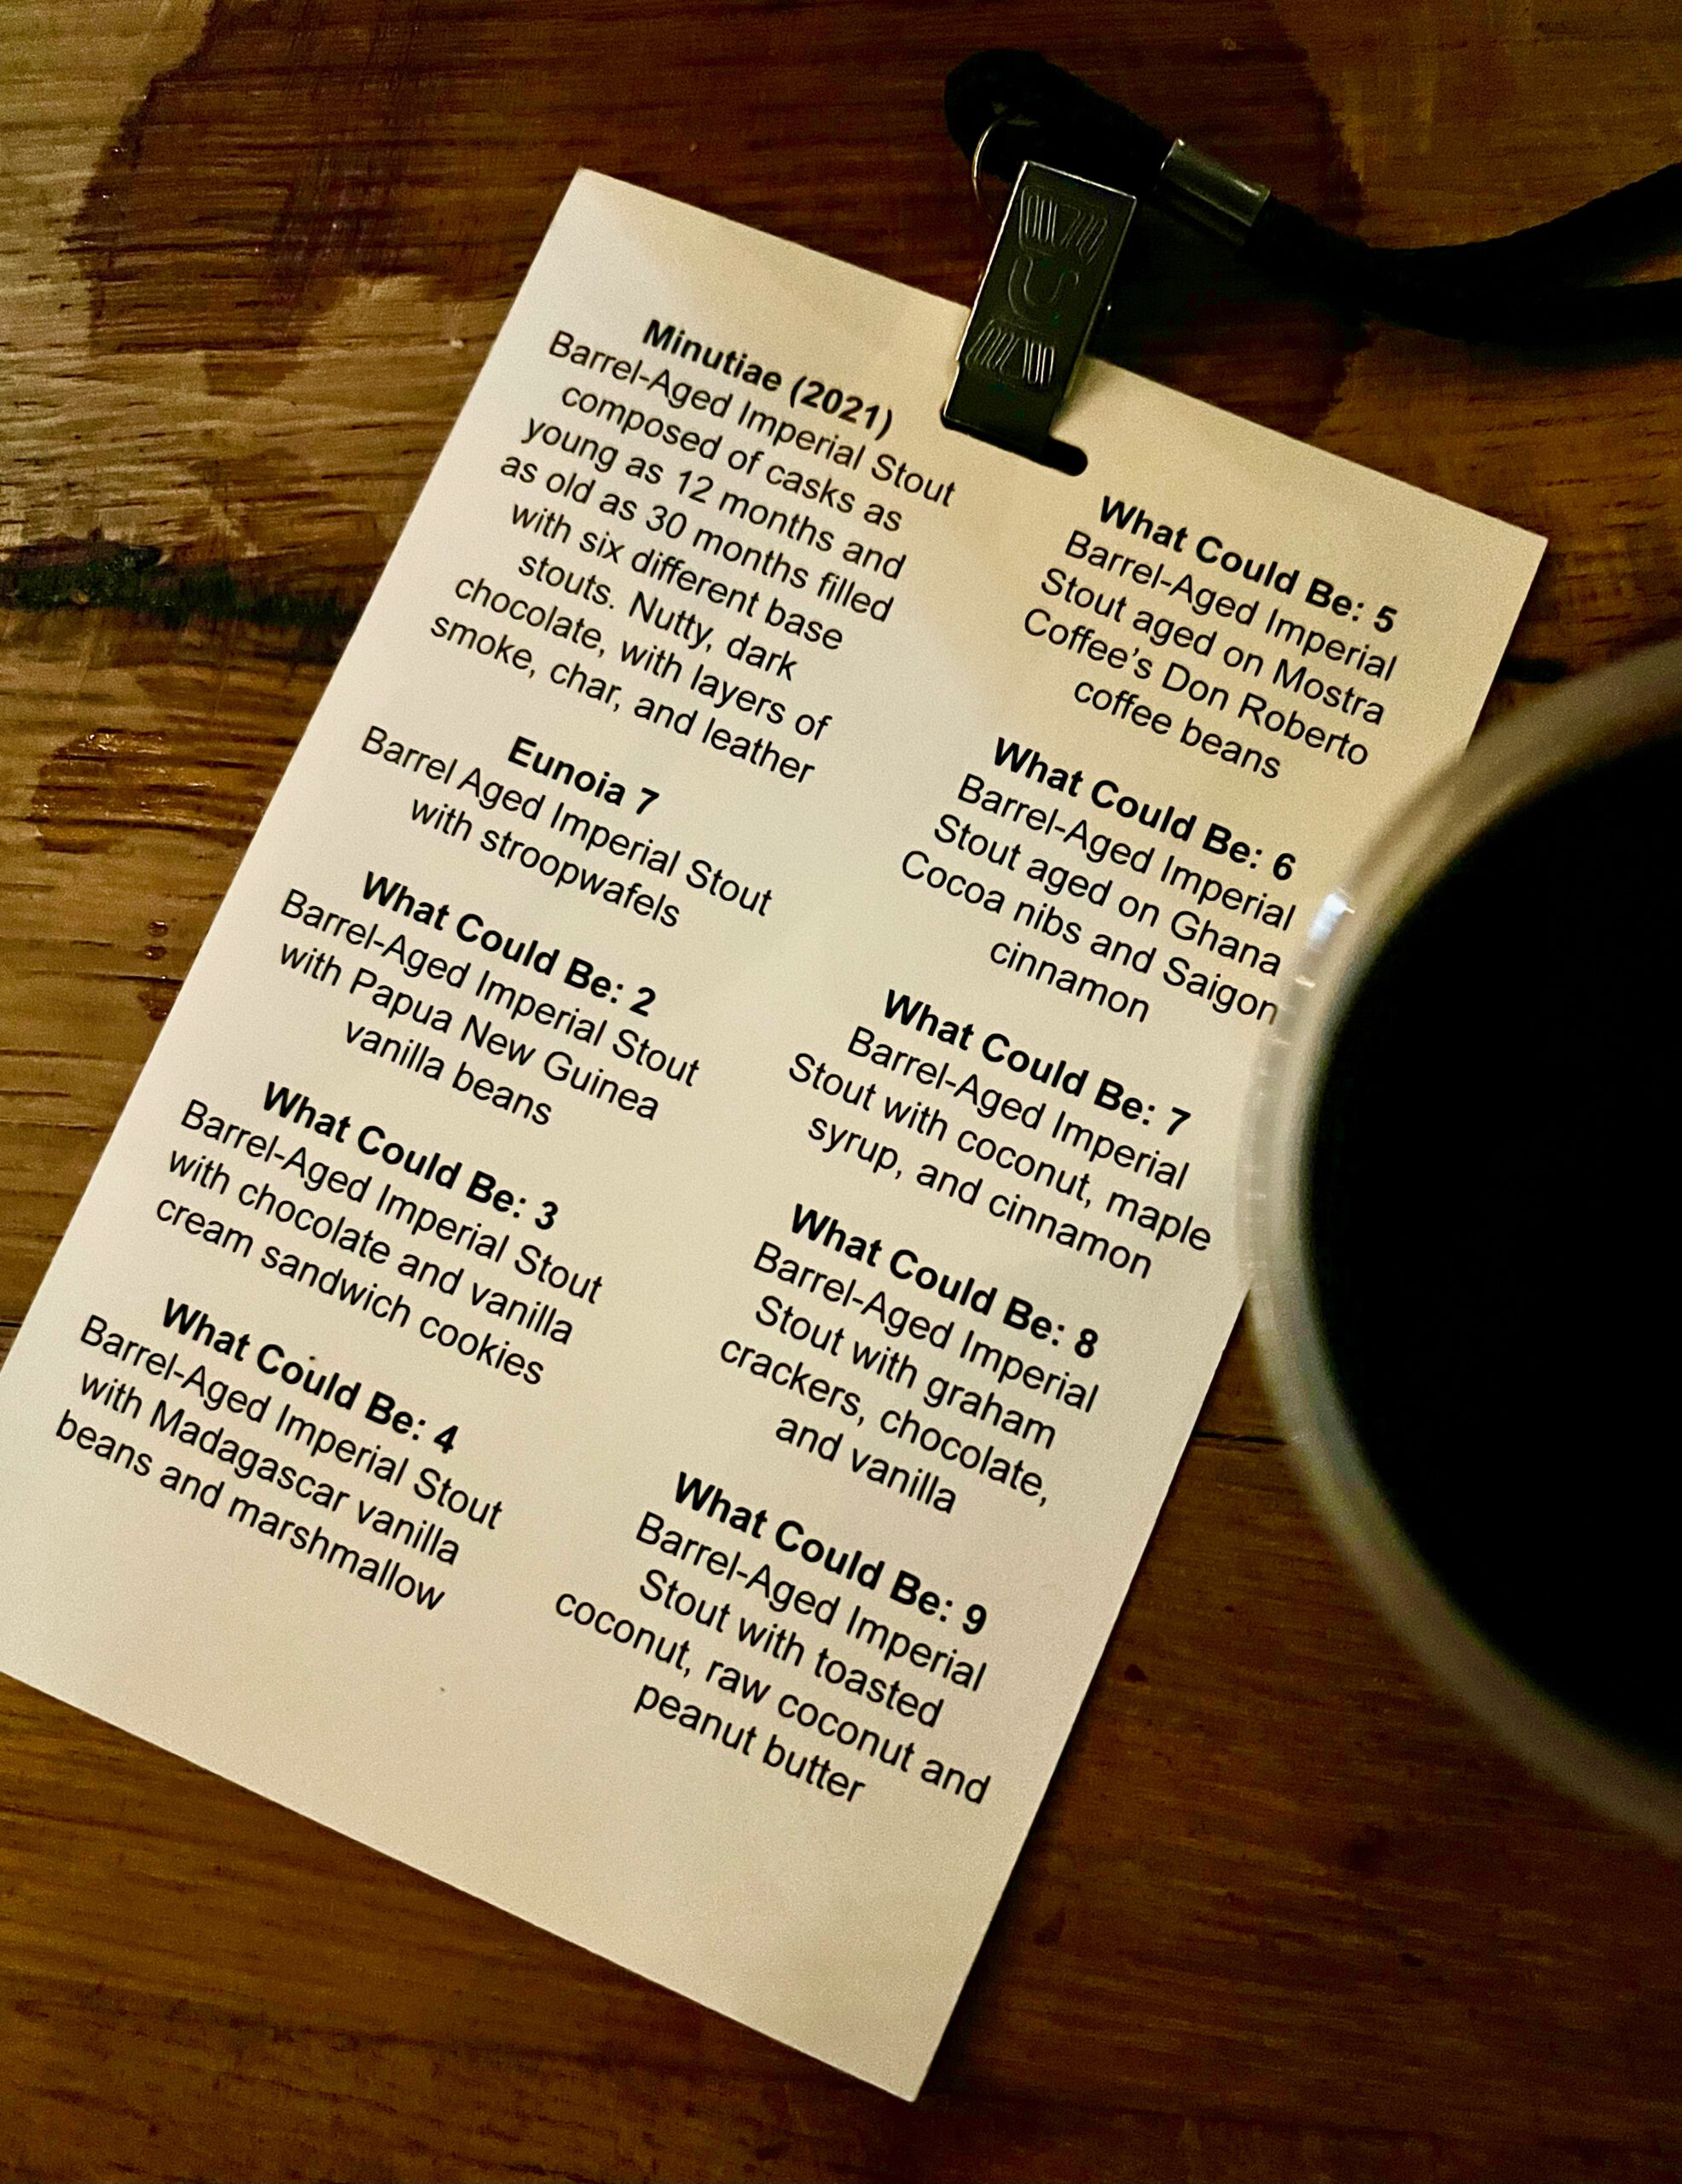 Minutiae (2021)
Barrel-Aged Imperial Stout
composed of casks as
young as 12 months and
as old as 30 months filled
with six different base
stouts. Nutty, dark
chocolate, with layers of
smoke, char, and leather
Eunoia 7
Barrel Aged Imperial Stout
with stroopwafels
What Could Be: 2
Barrel-Aged Imperial Stout
with Papua New Guinea
vanilla beans
What Could Be: 3
Barrel-Aged Imperial Stout
with chocolate and vanilla
cream sandwich cookies
What Could Be: 4
Barrel-Aged Imperial Stout
with Madagascar vanilla
beans and marshmallow
What Could Be: 5
Barrel-Aged Imperial
Stout aged on Mostra
Coffee’s Don Roberto
coffee beans
What Could Be: 6
Barrel-Aged Imperial
Stout aged on Ghana
Cocoa nibs and Saigon
cinnamon
What Could Be: 7
Barrel-Aged Imperial
Stout with coconut, maple
syrup, and cinnamon
What Could Be: 8
Barrel-Aged Imperial
Stout with graham
crackers, chocolate,
and vanilla
What Could Be: 9
Barrel-Aged Imperial
Stout with toasted
coconut, raw coconut and
peanut butter